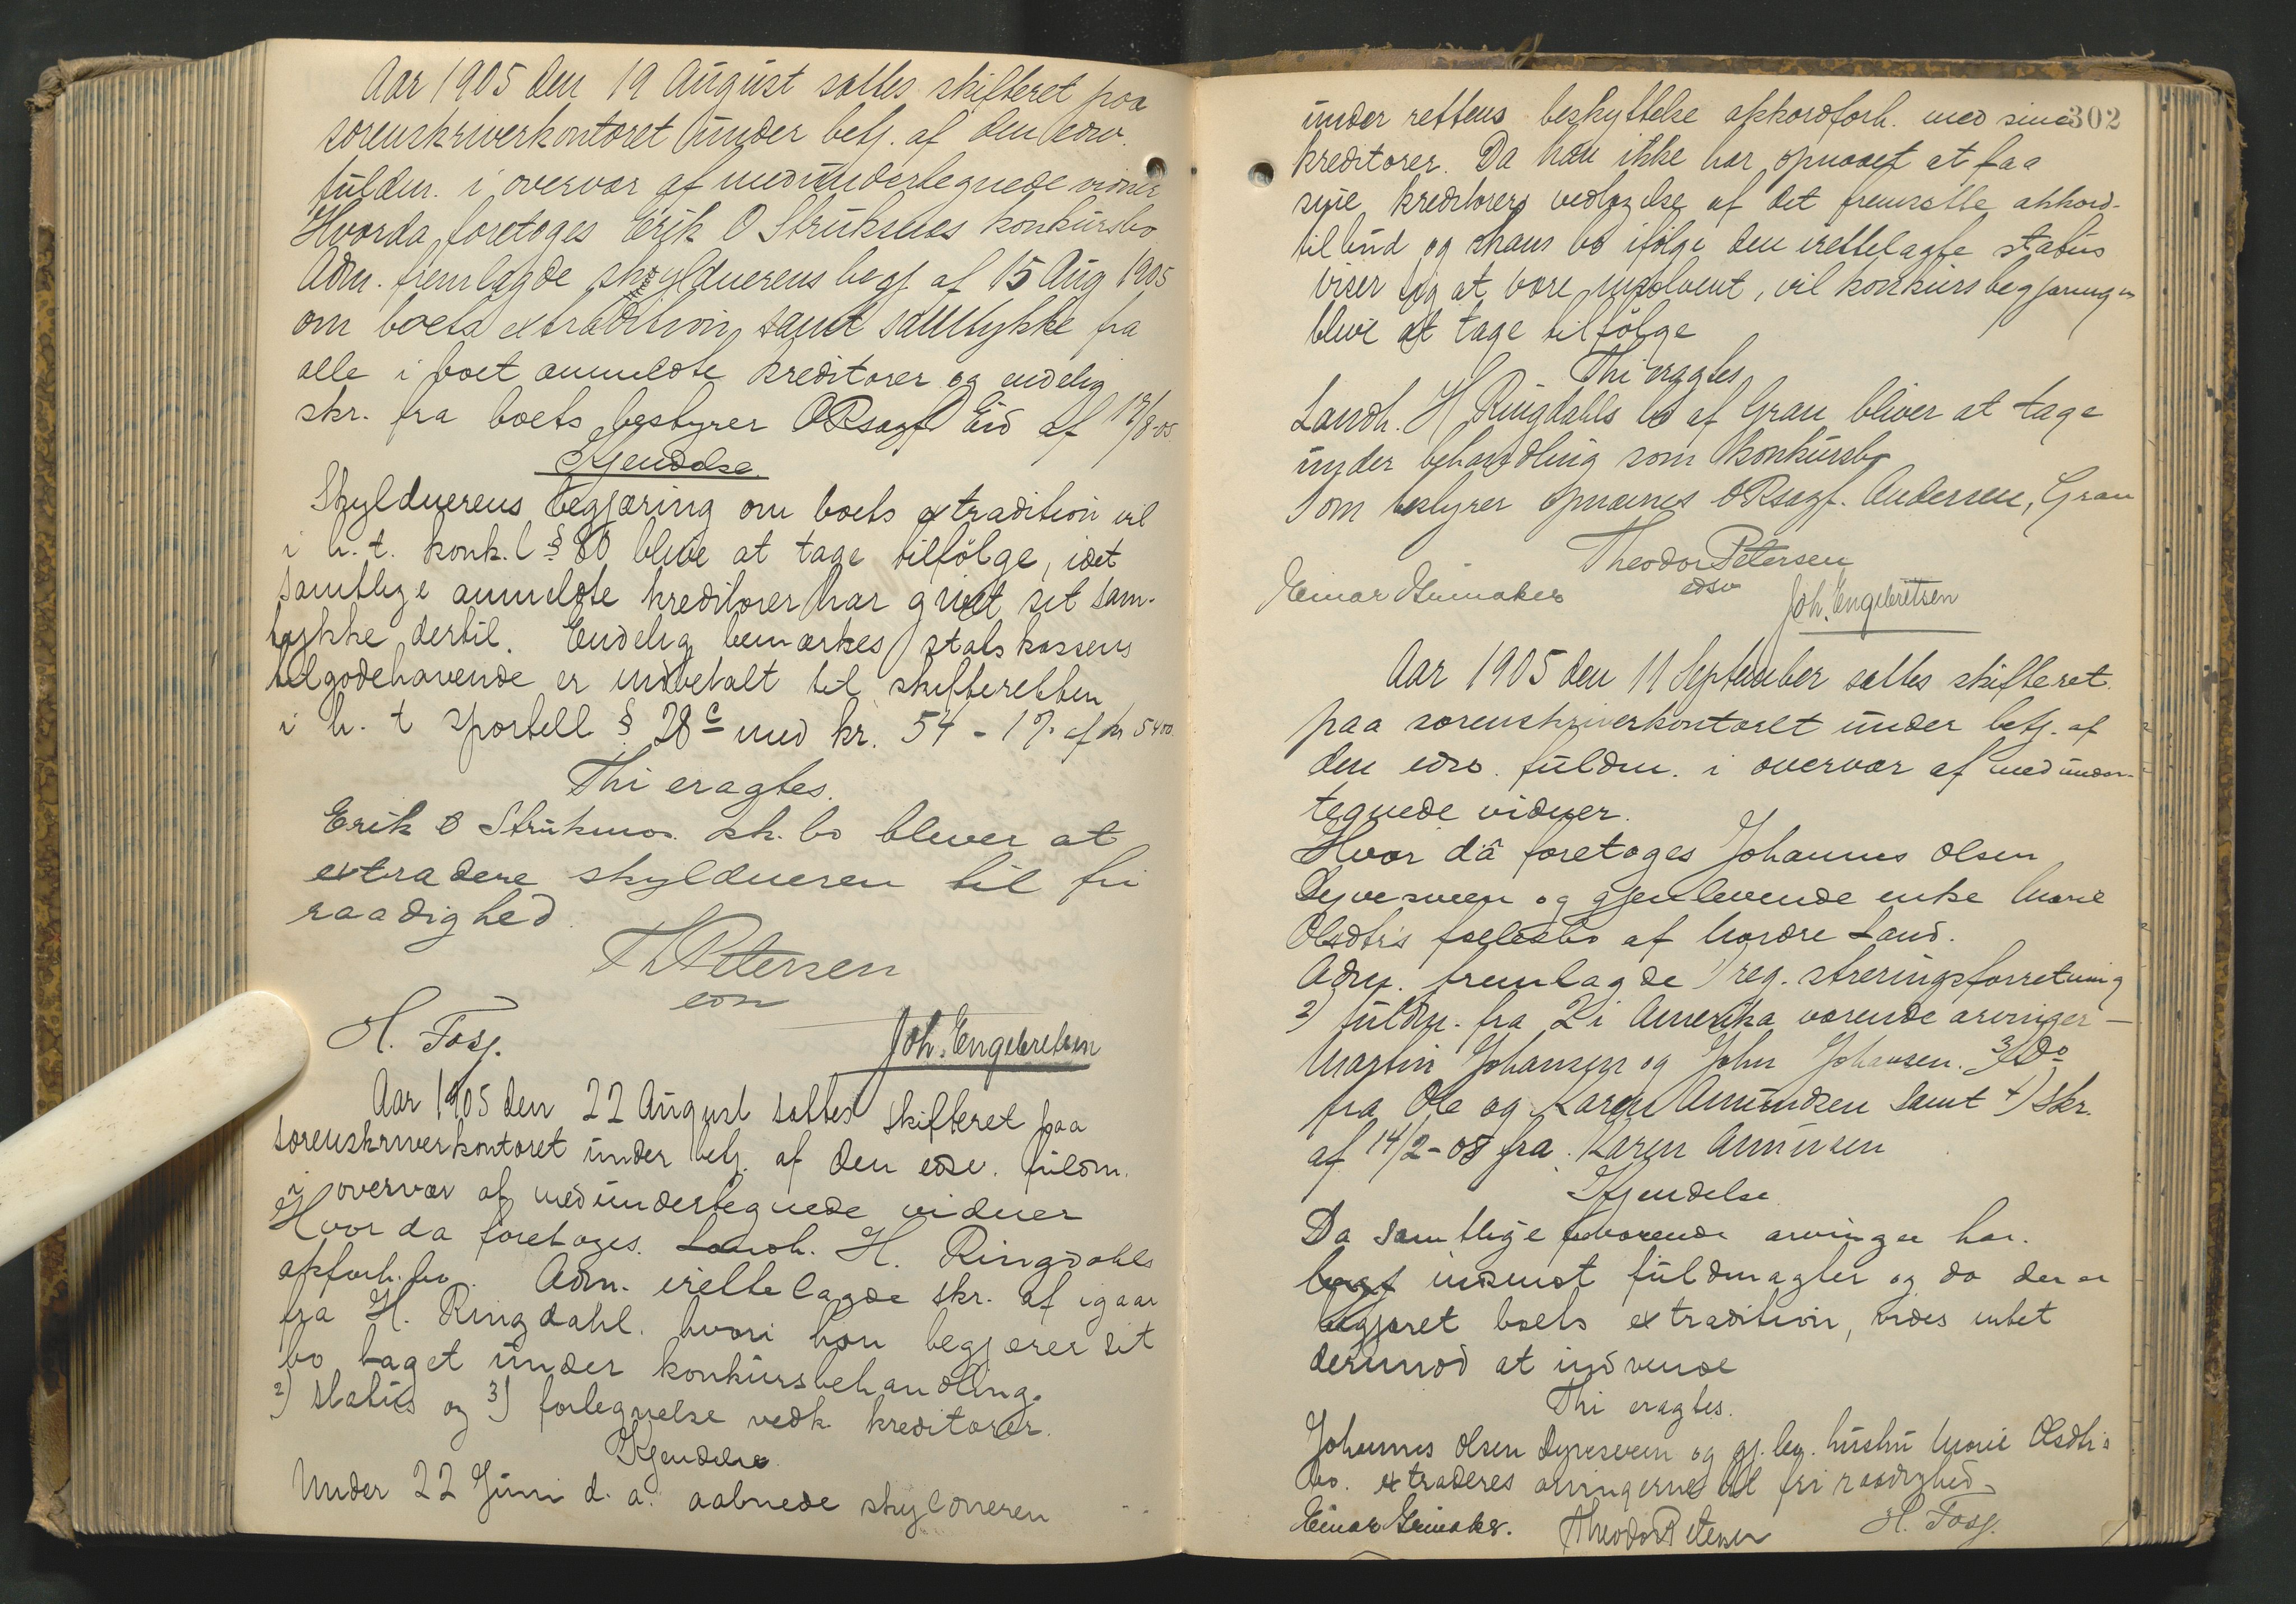 Aar 1905 den 19 August sattes skifteret paa
sorenskriverkontoret under betj. af den edsv.
fuldm. i overvær af medundertegnede vidner
Hvorda foretoges Erik O Struksnæs konkursbo
Adm. fremlagde skyldnerens begj af 15 Aug 1905
om boets extradition, samt samtykke fra
alle i boet anmeldte kreditorer og endelig
skr. fra boets bestyrer ORsagf Eid af 17/8-05.
Kjendelse
Skyldnerens begjæring om boets extradition vil
i h. t. konk.l § 80 blive at tage tilfölge, idet
samtlige anmeldte kreditorer har givet sit sam-
tykke dertil. Endelig bemærkes statskassens
tilgodehavende er indbetalt til skifteretten
i h. t sportell § 28 c med kr. 54 - 1 % af kr 5400.
Thi eragtes.
Erik O Struksnæs kk. bo bliver at
extradere skyldneren til fri
raadighed.
Th Petersen
edsv
H. Fosj.
Joh. Engebretsen
Aar 1905 den 22 August sattes skifteret paa
sorenskriverkontoret under betj. af den edsv. fuldm.
i overvær af medundertegnede vidner
Hvor da foretoges. Landh. H. Ringdahls
akforh. bo. Adm. irettelagde skr. af igaar
fra H. Ringdahl. hvori han begjærer sit
bo taget under konkursbehandling.
2) status og 3) fortegnelse vedk kreditorer.
Kjendelse.
Under 22 Juni d. a. aabnede skyldneren
302
under rettens beskyttelse akkordforh. med sine
kreditorer. Da han ikke har opnaaet at faa
sine kreditorers vedtagelse af det fremsatte akkord-
tilbud og hans bo ifølge den irettelagte status
viser sig at være insolvent, vil konkursbegjæringen
blive at tage tilfölge
Thi eragtes
Landh. H Ringdahls bo af Gran bliver at tage
under behandling som konkursbo
Som bestyrer opnævnes ORsagf. Andersen, Gran
Theodor Petersen
edsv
Einar Grinaker
Joh. Engebretsen
Aar 1905 den 11 September sattes skifteret
paa sorenskriverkontoret under betj. af
den edsv. fuldm. i overvær af medunder-
tegnede vidner.
Hvor da foretoges Johannes Olsen
Dyvesveen og gjenlevende enke Marie
Olsdtr's fællesbo af Nordre Land.
Adm. fremlagde 1) registreringsforretning
2) fuldm. fra 2 i Amerika værende arvinger -
Martin Johansen og John Johansen. 3) Do
fra Ole og Karen Amundsen samt 4) skr.
af 14/2-05 fra Karen Amundsen
Kjendelse
Da samtlige arvinger har.
indsendt fuldmagter og da der er
begjæret boets extradition, vides intet
derimod at indvende
Thi eragtes.
Johannes Olsen Dyvesveen og gj. lev. hustru Marie Olsdtr's
bo. extraderes arvingerne til fri raadighed.
Einar Grinaker. Theodor Petersen H. Fosj.